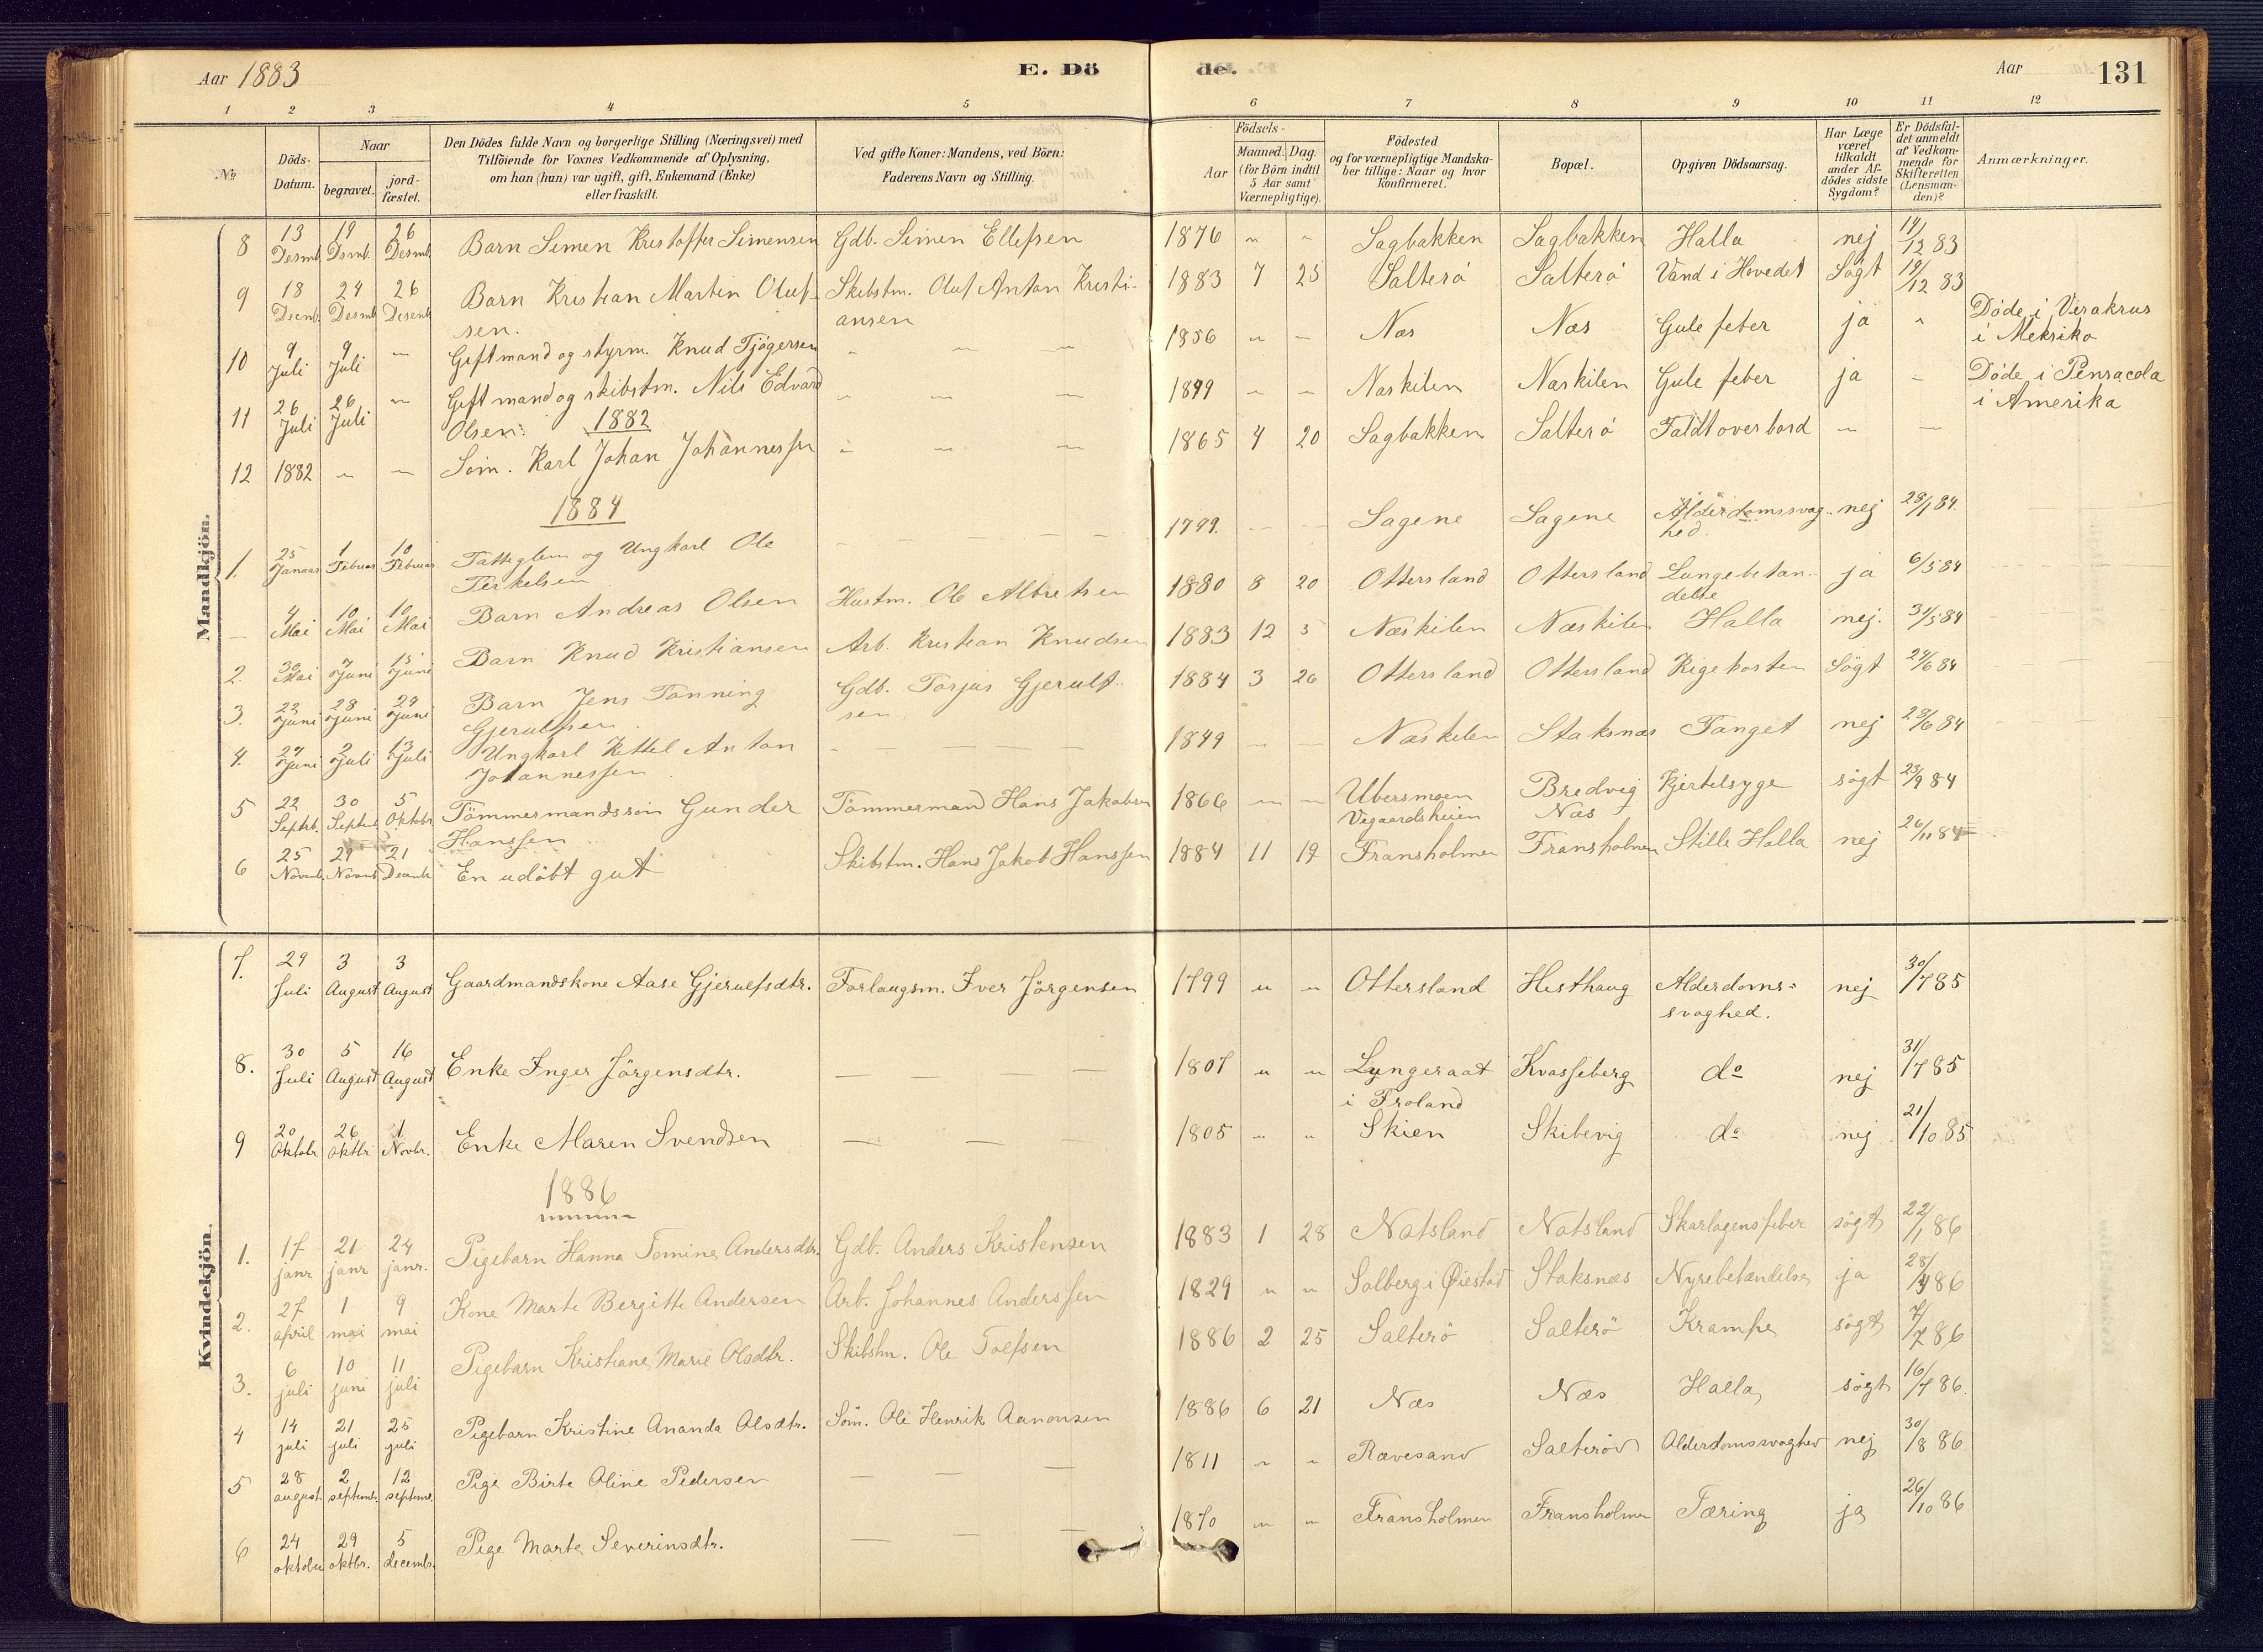 Aar 1883 E. Dö de. Aar 131
1 2 3 4 5 6 7 8 9 10 11 12
No Döds-Datum. Naar begravet. jordfæstet. Den Dödes fulde Navn og borgerlige Stilling (Næringsvei) med Tilföiende for Voxnes Vedkommende af Oplysning, om han (hun) var ugift, gift, Enkemand (Enke) eller fraskilt. Ved gifte Koner: Mandens, ved Börn: Faderens Navn og Stilling. Födsels- Aar Maaned. Dag. (for Börn indtil 5 Aar samt Værnepligtige). Födested og for værnepligtige Mandskaber tillige: Naar og hvor konfirmeret. Bopæl. Opgiven Dödsaarsag. Har Læge været tilkaldt under Afdödes sidste Sygdom? Er Dödsfaldet anmeldt af Vedkommende for Skifteretten (Lensmanden)? Anmærkninger.
Mandkjön.
8 13 Desmb. 19 Dsmb. 26 Desmb. Barn Simen Kristoffer Simensen Gdb. Simen Ellefsen 1876 " " Sagbakken Sagbakken Halla nej 14/12 83
9 18 Decmb. 24 Desmb 26 Desemb. Barn Kristian Martin Olufsen. Skibstm. Oluf Anton Kristiansen 1883 7 25 Salterö Salterö Vand i Hovedet Sögt 19/12 83
10 9 Juli 9 Juli " Giftmand og styrm. Knud Tjögersen " " " 1856 " " Næs Næs Gule feber ja " Döde i Verakrus i Meksiko
11 26 Juli 26 Juli " Giftmand og skibstm. Nils Edvard Olsen. " " " 1849 " " Næskilen Næskilen Gule feber ja " Döde i Pensacola i Amerika
1882
12 1882 " " Söm. Karl Johan Johannessen " " " 1865 4 20 Sagbakken Salterö Faldt over bord " "
1884
1. 25 Januar 1 Februar 10 Februar Fattiglem og Ungkarl Ole Terkelsen 1799. Sagene Sagene Alderdomssvaghed. nej 28/1 84.
– 4 Mai 10 Mai 10 Mai Barn Andreas Olsen Hustm. Ole Albretsen 1880 8 20 Ottersland Ottersland Lungebetændelse ja 6/5 84
2. 30 Mai 7 Juni 15 Juni Barn Knud Kristiansen Arb. Kristian Knudsen 1883 12 5 Næskilen Næskilen Halla nej. 31/5 84
3. 22 Juni 28 Juni 29 Juni Barn Jens Tanning Gjerulfsen Gdb. Torjus Gjerulfsen 1884 3 26 Ottersland Ottersland Kigehosten Sögt 24/6 84
4. 27 Juni 2 Juli 13 Juli Ungkarl Kittel Anton Johannessen 1849 Næskilen Staksnæs Fanget nej 28/6 84
5 22 Septbr. 30 Septemb. 5 Oktobr Tömmermandssön Gunder Hanssen Tömmermand Hans Jakobsen 1866 " " Ubersmoen Vegaardsheien Bredvig Næs Kjertelsyge sögt 23/9 84
6 25 Novemb. 29 Novmb 21 Decmb En udöbt gut Skibstm. Hans Jakob Hanssen 1884 11 19 Fransholmen Fransholmen Stille Halla nej 26/11 84
Kvindekjön.
7. 29 Juli 3 August 3 August Gaardmandskone Aase Gjerulfsdtr. Forlaugsm. Iver Jörgensen 1799 " " Ottersland Hesthaug Alderdomssvaghed. nej 30/7 85
8. 30 Juli 5 August 16 August Enke Inger Jörgensdtr. – – – 1807 " " Lyngeraat i Froland Kvasseberg do nej 31/7 85
9 20 Oktobr 26 Oktbr 1 Novbr. Enke Maren Svendsen – – – 1805 " " Skien Skibevig do nej 21/10 85
1886
1. 17 janr 21 janr 24 janr. Pigebarn Hanna Tomine Andersdtr. Gdb. Anders Kristensen 1883 1 28 Natsland Natsland Skarlagensfeber sögt 22/1 86
2. 27 april 1 mai 9 mai Kone Marte Bergitte Andersen Arb. Johannes Anderssen 1829 " " Solberg i Öiestad Staksnæs Nyrebetændelse ja 28/4 86
3. 6 juli 10 juni 11 juli Pigebarn Kristiane Marie Olsdtr. Skibstm. Ole Tolfsen 1886 2 25 Salterö Salterö Krampe sögt 7/7 86
4 14 juli 21 juli 25 juli Pigebarn Kristine Ananda Olsdtr. Söm. Ole Henrik Aanonsen 1886 6 21 Næs Næs Halla sögt 16/7 86.
5 28 august 2 septemb. 12 septemb. Pige Birte Oline Pedersen – – – 1811 " " Rævesand Salteröd Alderdomssvaghed nej 30/8 86.
6 24 oktober 29 oktbr. 5 decemb. Pige Marte Severinsdtr. – – – 1870 " " Fransholmen Fransholmen Tæring ja 26/10 86